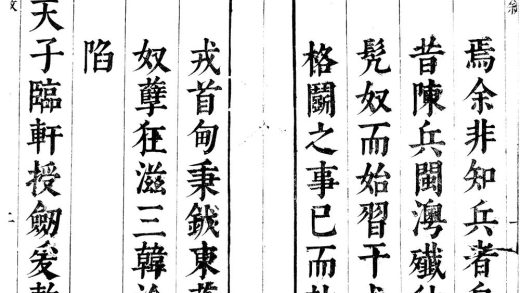 焉余非知兵者
昔陳兵閩灣殲
髠奴而始習干
格鬭之事已而
戎首甸秉鉞東
奴孽狂滋三韓
陷
天子臨軒授劒爰